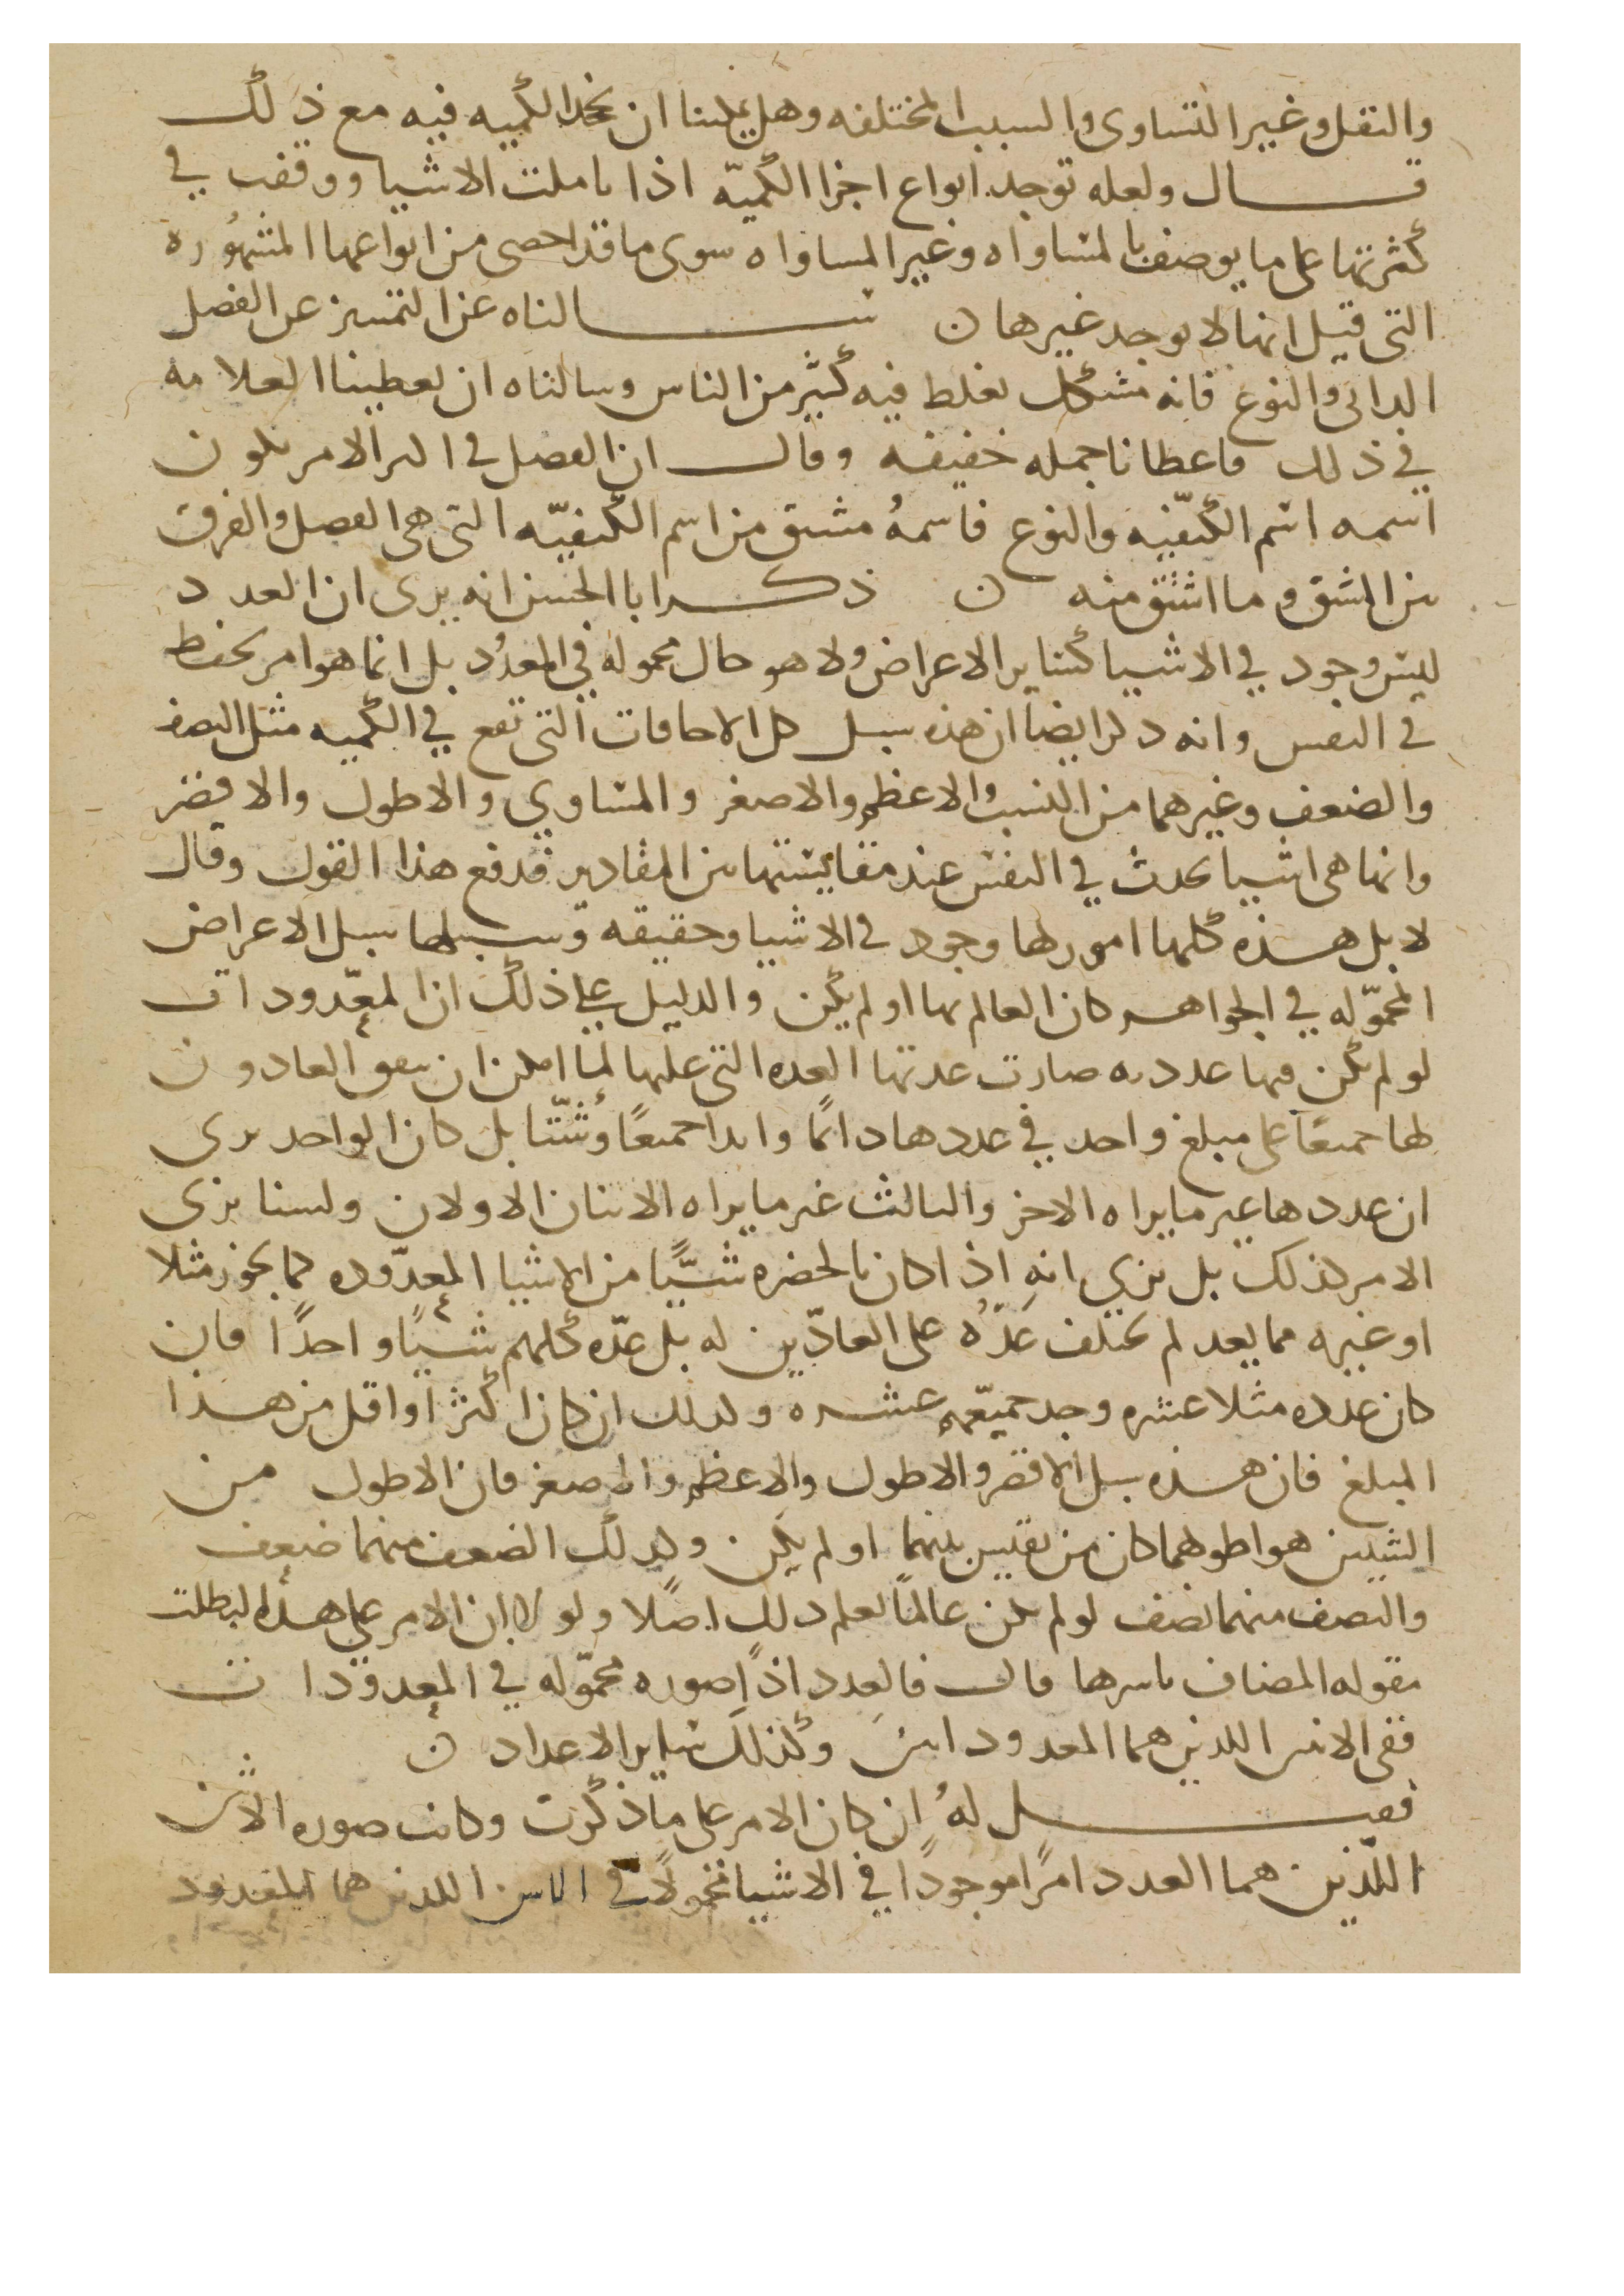 والثقل وغير التساوى والسبب المختلفه وهل يمكننا ان نجد الكميه فيه مع ذلك
قال ولعله توجد انواع اجزا الكميّه اذا تاملت الاشيا ووقفت في
كثرتها على ما يوصف بالمساواه وغير المساواه سوى ما قد احصى من انواعها المشهُوره
التى قيل انها لا يوجد غيرها ن سالناه عن التمييز عن الفصل
الذاتى والنوع فانه مشكل يغلط فيه كثير من الناس وسالناه ان يعطينا العلامه
في ذلك فاعطانا جمله خفيفه وقال ان الفصل في اكثر الامر يكون
اسمه اسم الكيفيّه والنوع فاسمهُ مشتق من اسم الكيفيّه التى هى الفصل والفرق
بين المشتق وما اشتق منه ن ذكر ابا الحسن انه يرى ان العدد
ليس وجود في الاشيا كساير الاعراض ولا هو حال محموله في المعدُود بل انما هو امر يحفظ
في النفس وانه ذكر ايضا ان هذه سبيل كل الاضافات التى تقع في الكميه مثل النصف
والضعف وغيرهما من النسب والاعظم والاصغر والمساوي والاطول والاقصر
وانما هى اشيا تحدث في النفس عند مقايستها بين المقادير فدفع هذا القول وقال
لا بل هذه كلها امور لها وجود في الاشيا وحقيقه وسبيلها سبيل الاعراض
المحموّله في الجواهر كان العالم بها او لم يكن والدليل على ذلك ان المعدّودات
لو لم يكن فيها عدد به صارت عدتها العده التى عليها لما امكن ان يتفق العادون
لها جميعًا على مبلغ واحد في عددها دائمًا وابدا جميعًا وشُتّتا بل كان الواحد يرى
ان عددها غير ما يراه الاخر والثالث غير ما يراه الاثنان الاولان ولسنا نرى
الامر كذلك بل نري انه اذا كان بالحضره شيًّا من الاشيا المعدّوده كما يجوز مثلا
او غيره مما يعد لم يختلف عَدّهُ على العادّين له بل عدّه كلهم شيًا واحدًا فان
كان عدده مثلا عشره وجد جميعّهم عشره وكذلك ان كان اكثر او اقل من هذا
المبلغ فان هذه سبيل الاقصر والاطول والاعظم والاصغر فان الاطول من
الشيين هو اطولهما كان من يقيس بينهما او لم يكن وكذلك الضعف منهما ضعف
والنصف منهما نصف لو لم يكن عالمًا يعلم ذلك اصلًا ولو لا ان الامر على هذا لبطلت
مقوله المضاف باسرها قال فالعدد اذًا صوره محموّله في المعدوّدات
ففى الاثنين اللذين هما المعدود اثنين وكذلك ساير الاعداد ن
فقيل لهُ ان كان الامر على ما ذكرت وكانت صوره الاثنين
اللّذين هما العدد امرًا موجودًا في الاشيا محمولًا في الاثنين اللذين هما المعدود